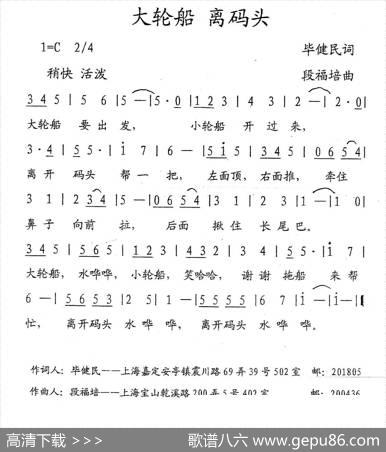 大轮船 离码头
1=C 2/4 毕健民词
稍快 活泼 段福培曲
3 4 5 | 5 6 | 5 — | 5 · 0 | 1 2 3 | 4 3 | 2 — | 2 · 0 |
大轮船 要出发, 小轮船 开过来,
3 · 4 | 5 5 · | i 7 | 6 — | 5 i 5 | 3 4 5 | 0 6 5 4 |
离开 码头 帮一把, 左面顶, 右面推, 牵住
3 1 | 2 3 4 | 3 — | 0 5 4 | 3 1 | 2 3 2 | 1 — | 1 0 |
鼻子 向前 拉, 后面 揪住 长尾巴。
3 4 5 | 5 6 5 | 1 2 3 | 4 3 2 | 3 4 | 5 5 · | i 7 |
大轮船, 水哗哗, 小轮船, 笑哈哈, 谢谢 拖船 来帮
6 — | 5 6 5 3 | 2 0 | 5 0 | 5 6 5 3 | 2 5 | i — | i — ‖
忙, 离开码头 水 哗 哗, 离开码头 水 哗 哗。
作词人:毕健民——上海嘉定安亭镇震川路69弄39号502室 邮:201805
作曲人:段福培——上海宝山乾溪路200弄5号402室 邮:200436
高清下载 >>> 歌谱八六 www.gepu86.com